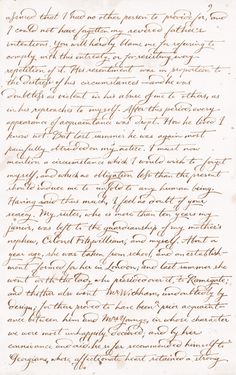 assured that I had no other person to provide for, and
I could not have forgotten my revered father's
intentions. You will hardly blame me for refusing to
comply with this entreaty, or for resisting every
repetition of it. His resentment was in proportion to
the distress of his circumstances — and he was
doubtless as violent in his abuse of me to others, as
in his reproaches to myself. After this period, every
appearance of acquaintance was dropt. How he lived I
know not. But last summer he was again most
painfully obtruded on my notice. I must now
mention a circumstance which I would wish to forget
myself, and which no obligation less than the present
should induce me to unfold to any human being.
Having said thus much, I feel no doubt of your
secrecy. My sister, who is more than ten years my
junior, was left to the guardianship of my mother's
nephew, Colonel Fitzwilliam, and myself. About a
year ago, she was taken from school, and an establish-
ment formed for her in London; and last summer she
went with the lady who presided over it, to Ramsgate;
and thither also went Mr Wickham, undoubtedly by
design; for there proved to have been a prior acquaint-
ance between him and Mrs Younge, in whose character
we were most unhappily deceived; and by her
connivance and aid, he so far recommended himself to
Georgiana, whose affectionate heart retained a strong